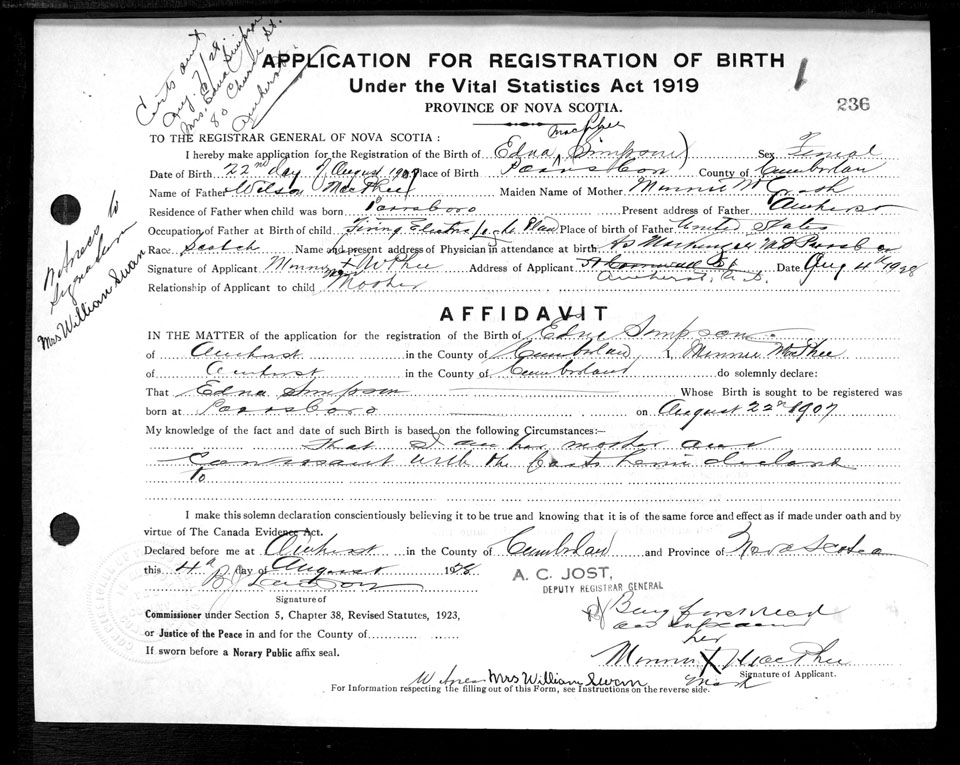 Certs sent
Aug. 8/28
Mrs. Edna Simpson
80 Church St.
Amherst
APPLICATION FOR REGISTRATION OF BIRTH
Under the Vital Statistics Act 1919
PROVINCE OF NOVA SCOTIA.
1
236
TO THE REGISTRAR GENERAL OF NOVA SCOTIA :
MacPhee
I hereby make application for the Registration of the Birth of Edna (Simpson) Sex Femal
Date of Birth 22nd day of August 1907 Place of Birth Parrsboro County of Cumberlan
Name of Father Wilson MacPhee Maiden Name of Mother Minnie
Residence of Father when child was born Parrsboro Present address of Father Amherst
Occupation of Father at Birth of child Firing Electric Light Plan Place of birth of Father United States
Race Scotch Name and present address of Physician in attendance at birth MD Parrsboro
Signature of Applicant Minnie McPhee Address of Applicant Amherst, N.S. Date Aug 4th 1928
Relationship of Applicant to child Mother
Witness to
Signature
Mrs William Swan
AFFIDAVIT
IN THE MATTER of the application for the registration of the Birth of Edna Simpson
of Amherst in the County of Cumberland I, Minnie MacPhee
of Amherst in the County of Cumberland do solemnly declare:
That Edna Simpson Whose Birth is sought to be registered was
born at Parrsboro on August 22nd 1907
My knowledge of the fact and date of such Birth is based on the following Circumstances:—
That I am her mother and
Conversant with the facts herein declared
To
I make this solemn declaration conscientiously believing it to be true and knowing that it is of the same force and effect as if made under oath and by
virtue of The Canada Evidence Act.
Declared before me at Amherst in the County of Cumberlan and Province of Nova Scotia
this 4th day of August 1928
A. C. JOST,
DEPUTY REGISTRAR GENERAL
Signature of
Being first read
and explained
Commissioner under Section 5, Chapter 38, Revised Statutes, 1923,
or Justice of the Peace in and for the County of
her
If sworn before a Norary Public affix seal.
Minnie X MacPhee
Signature of Applicant.
mark
Witness Mrs William Swan
For Information respecting the filling out of this Form, see Instructions on the reverse side.